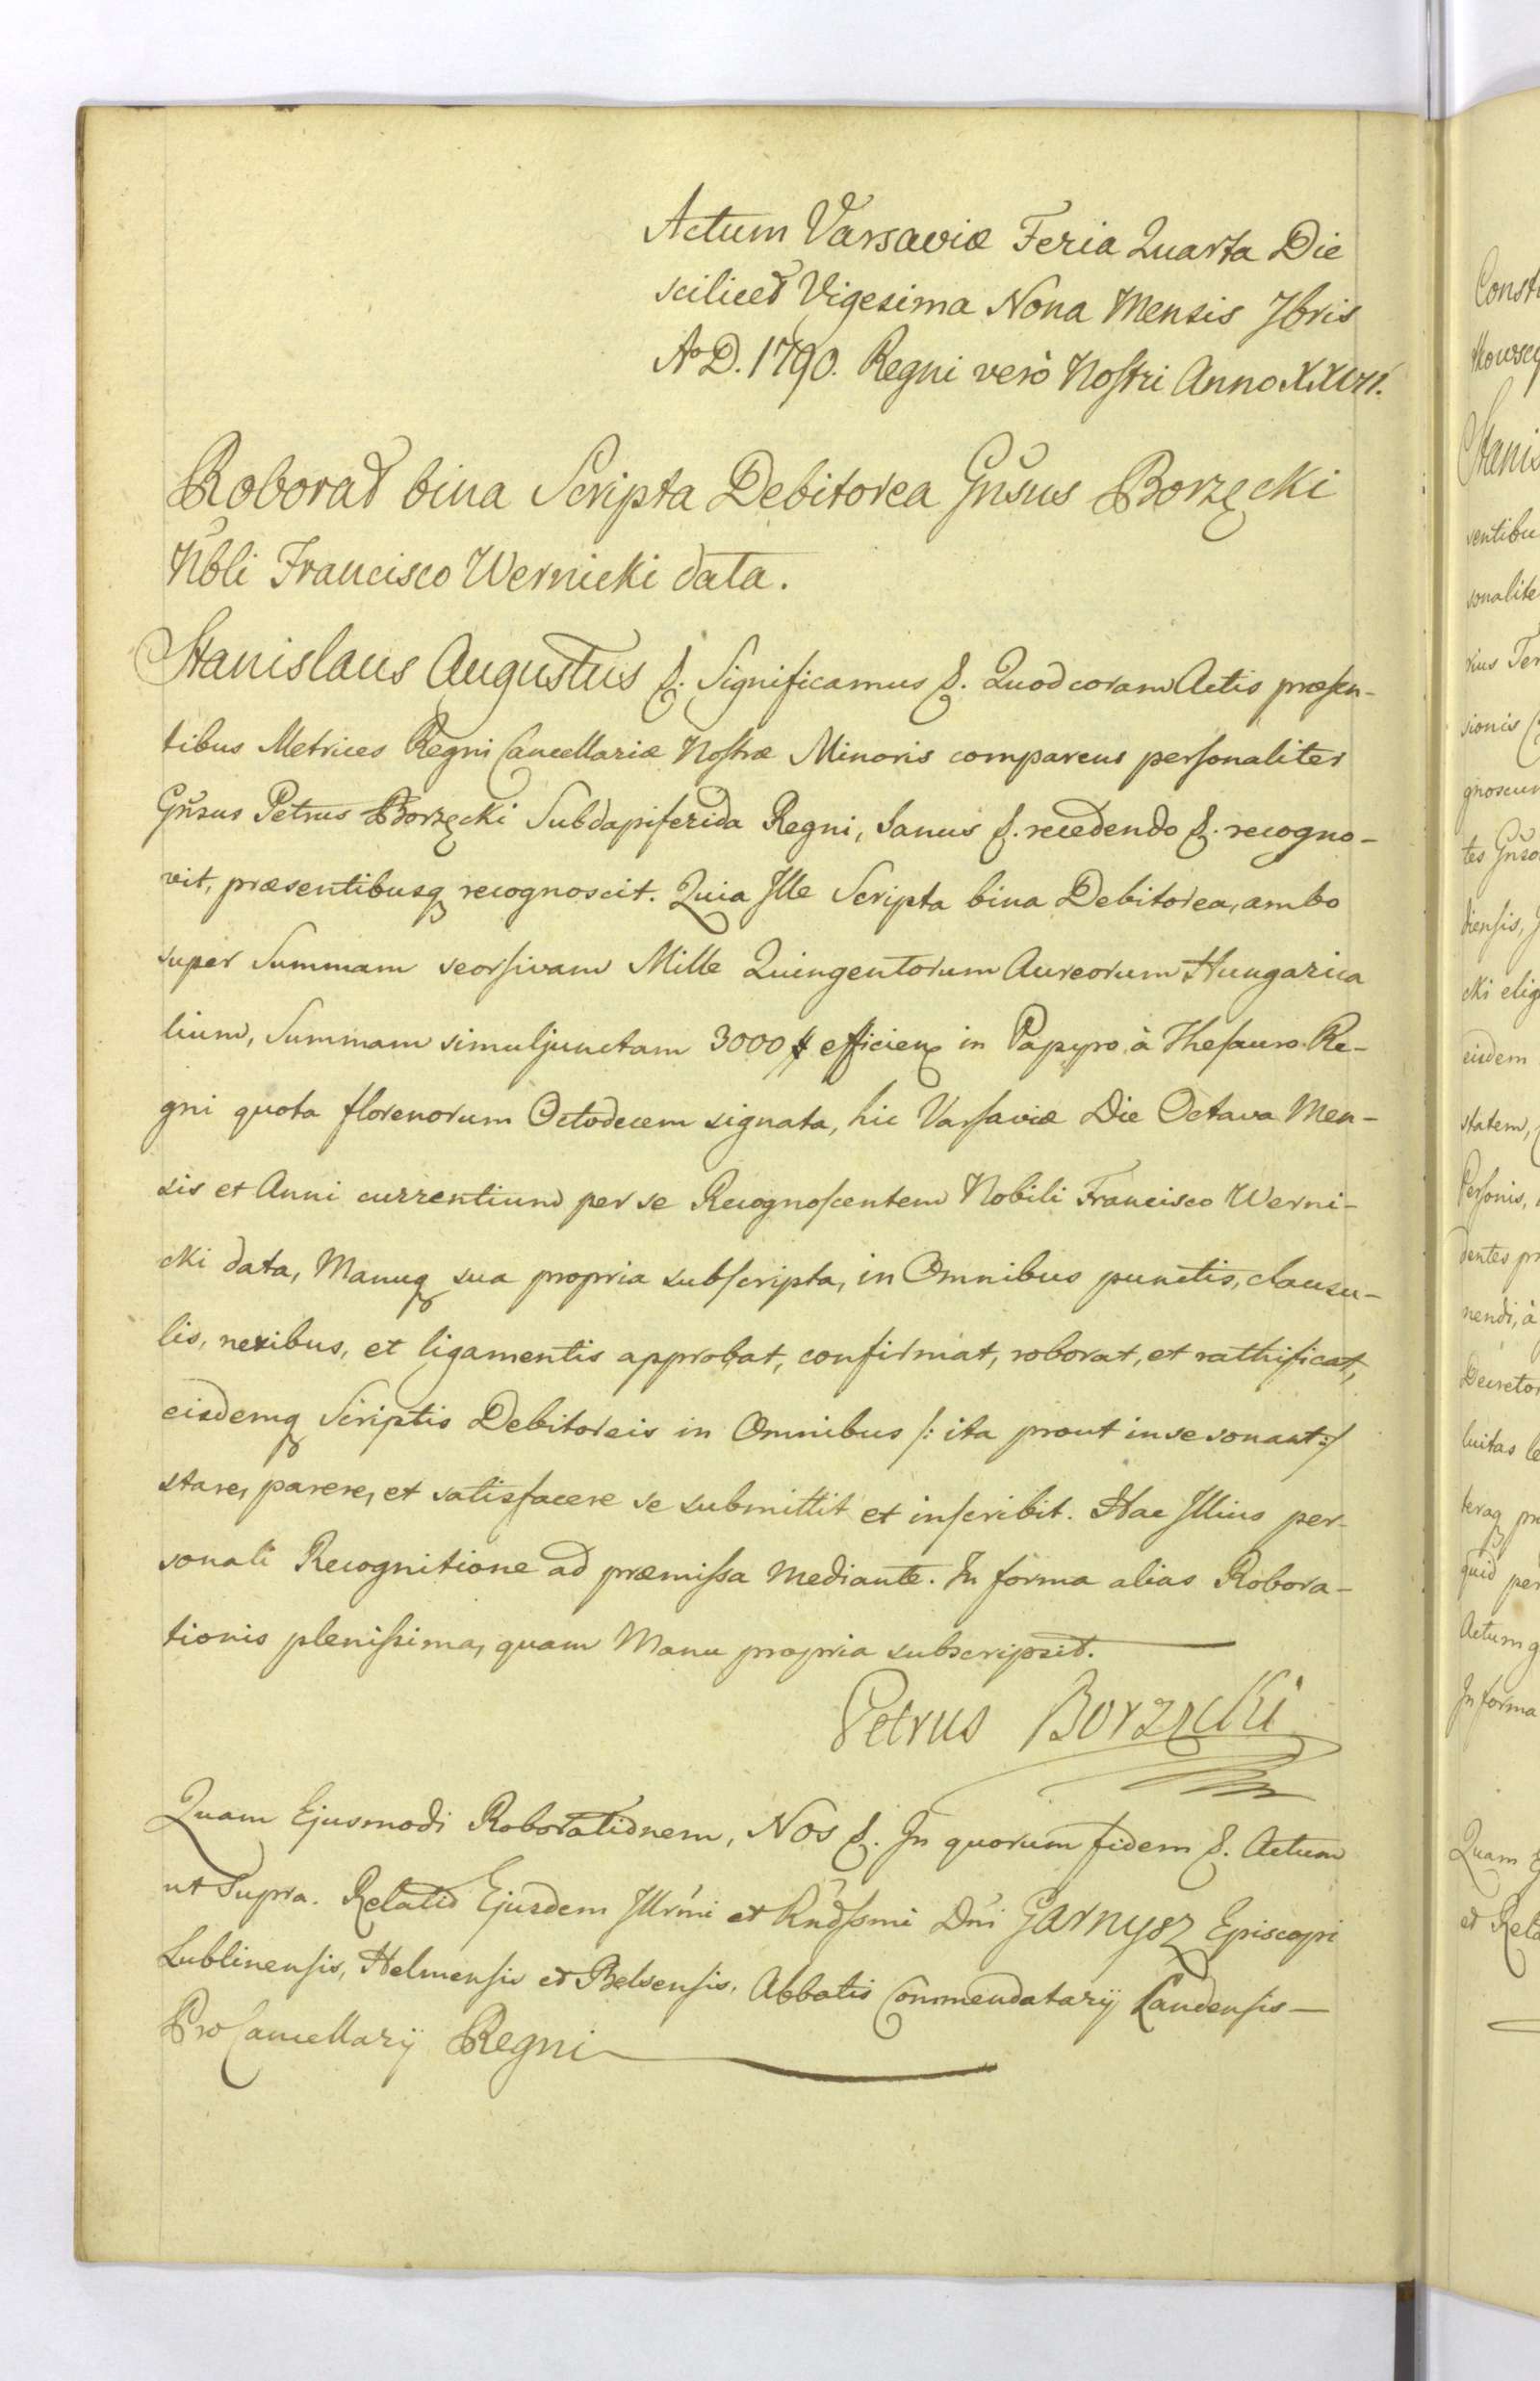 Actum Varsaviæ Feria Quarta Die
scilicet Vigesima Nona Mensis 7bris
Aº D. 1790. Regni verò Nostri Anno XXVII.
Roborat bina Scripta Debitorea Gnsus Borzęcki
Nbli Francisco Wernicki data.
Stanislaus Augustus &. Significamus &. Quod coram Actis præsen-
tibus Metrices Regni Cancellariæ Nostræ Minoris comparens personaliter
Gnsus Petrus Borzęcki Subdapiferida Regni, Sanus &. recedendo &. recogno-
vit, præsentibusq recognoscit. Quia Ille Scripta bina Debitorea, ambo
super Summam seorsivam Mille Quingentorum Aureorum Hungarica
lium, Summam simuljunctam 3000 # efficien in Papyro à Thesauro Re-
gni quota florenorum Octodecem signata, hic Varsaviæ Die Octava Men-
sis et Anni currentium per se Recognoscentem Nobili Francisco Werni-
cki data, Manuq sua propria subscripta, in Omnibus punctis, clausu-
lis, nexibus, et ligamentis approbat, confirmat, roborat, et rathificat,
eisdemq Scriptis Debitoreis in Omnibus /: ita prout in se sonant :/
stare, parere, et satisfacere se submittit et inscribit. Hac Illius per-
sonali Recognitione ad præmissa Mediante. In forma alias Robora-
tionis plenissima, quam Manu propria subscripsit.
Petrus Borzęcki
Quam Ejusmodi Roborationem, Nos &. In quorum fidem &. Actum
ut Supra. Relatio Ejusdem Illrmi et Rndssmi Dni Garnysz Episcopi
Lublinensis, Helmensis et Belsensis, Abbatis Commendatarij Landensis —
ProCancellarij Regni